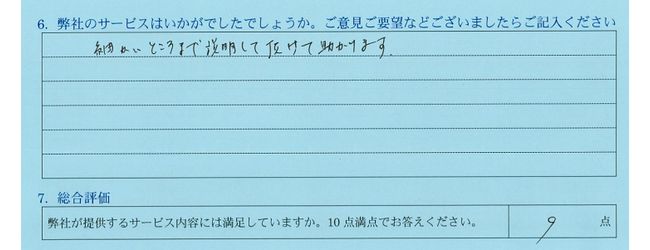 6. 弊社のサービスはいかがでしたでしょうか。ご意見ご要望などございましたらご記入ください
細かいところまで説明して頂けて助かります。
7. 総合評価
弊社が提供するサービス内容には満足していますか。10点満点でお答えください。 9 点